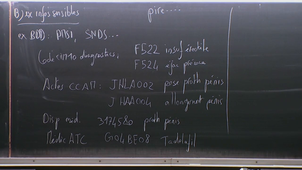 B) De infos sensibles pire....
ex BDD : PMSI, SNDS...
Codes CIM10 diagnostics, F522 insuf érectile
F524 éjac précoce
Actes CCAM : JHLA002 pose proth pénis
JHAA004 allongement pénis
Disp med. 3174580 proth pénis
Medic ATC G04BE08 Tadalafil